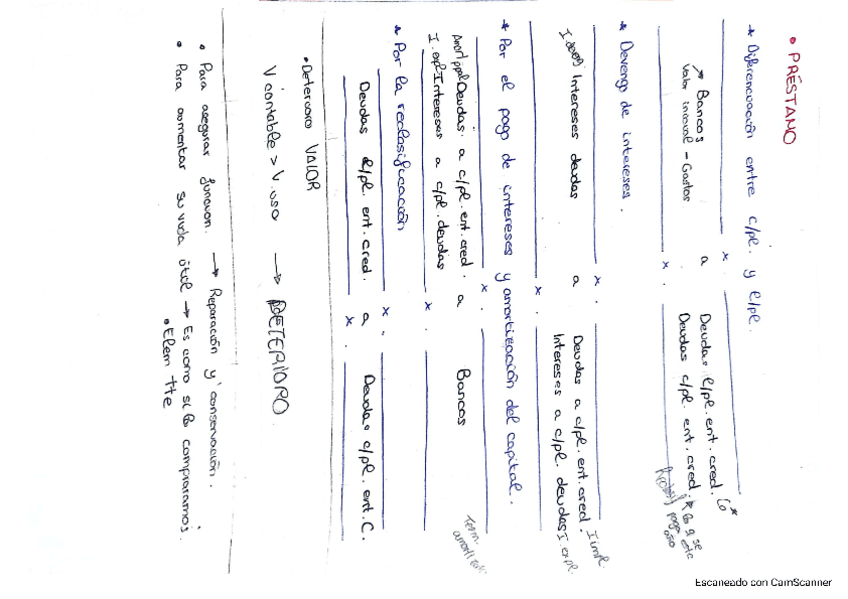 • PRÉSTAMO
* Diferenciación entre c/pl. y l/pl.
x
→ Bancos a Deudas l/pl. ent. cred.
Valor inicial - Gastos Deudas c/pl. ent. cred.
x
* Devengo de intereses.
x
Intereses deudas a Deudas a c/pl. ent. cred. I impl.
Intereses a c/pl. deudas I expl.
x
* Por el pago de intereses y amortización del capital.
x
Deudas a c/pl. ent. cred. a Bancos
I. expl Intereses a c/pl. deudas
x
* Por la reclasificación
x
Deudas l/pl. ent. cred. a Deudas c/pl. ent. C.
x
• Deterioro VALOR
V contable > V. uso → DETERIORO
• Para asegurar funcion. → Reparación y conservación.
• Para aumentar su vida útil → Es como si lo compraramos.
• Elem tte
Escaneado con CamScanner